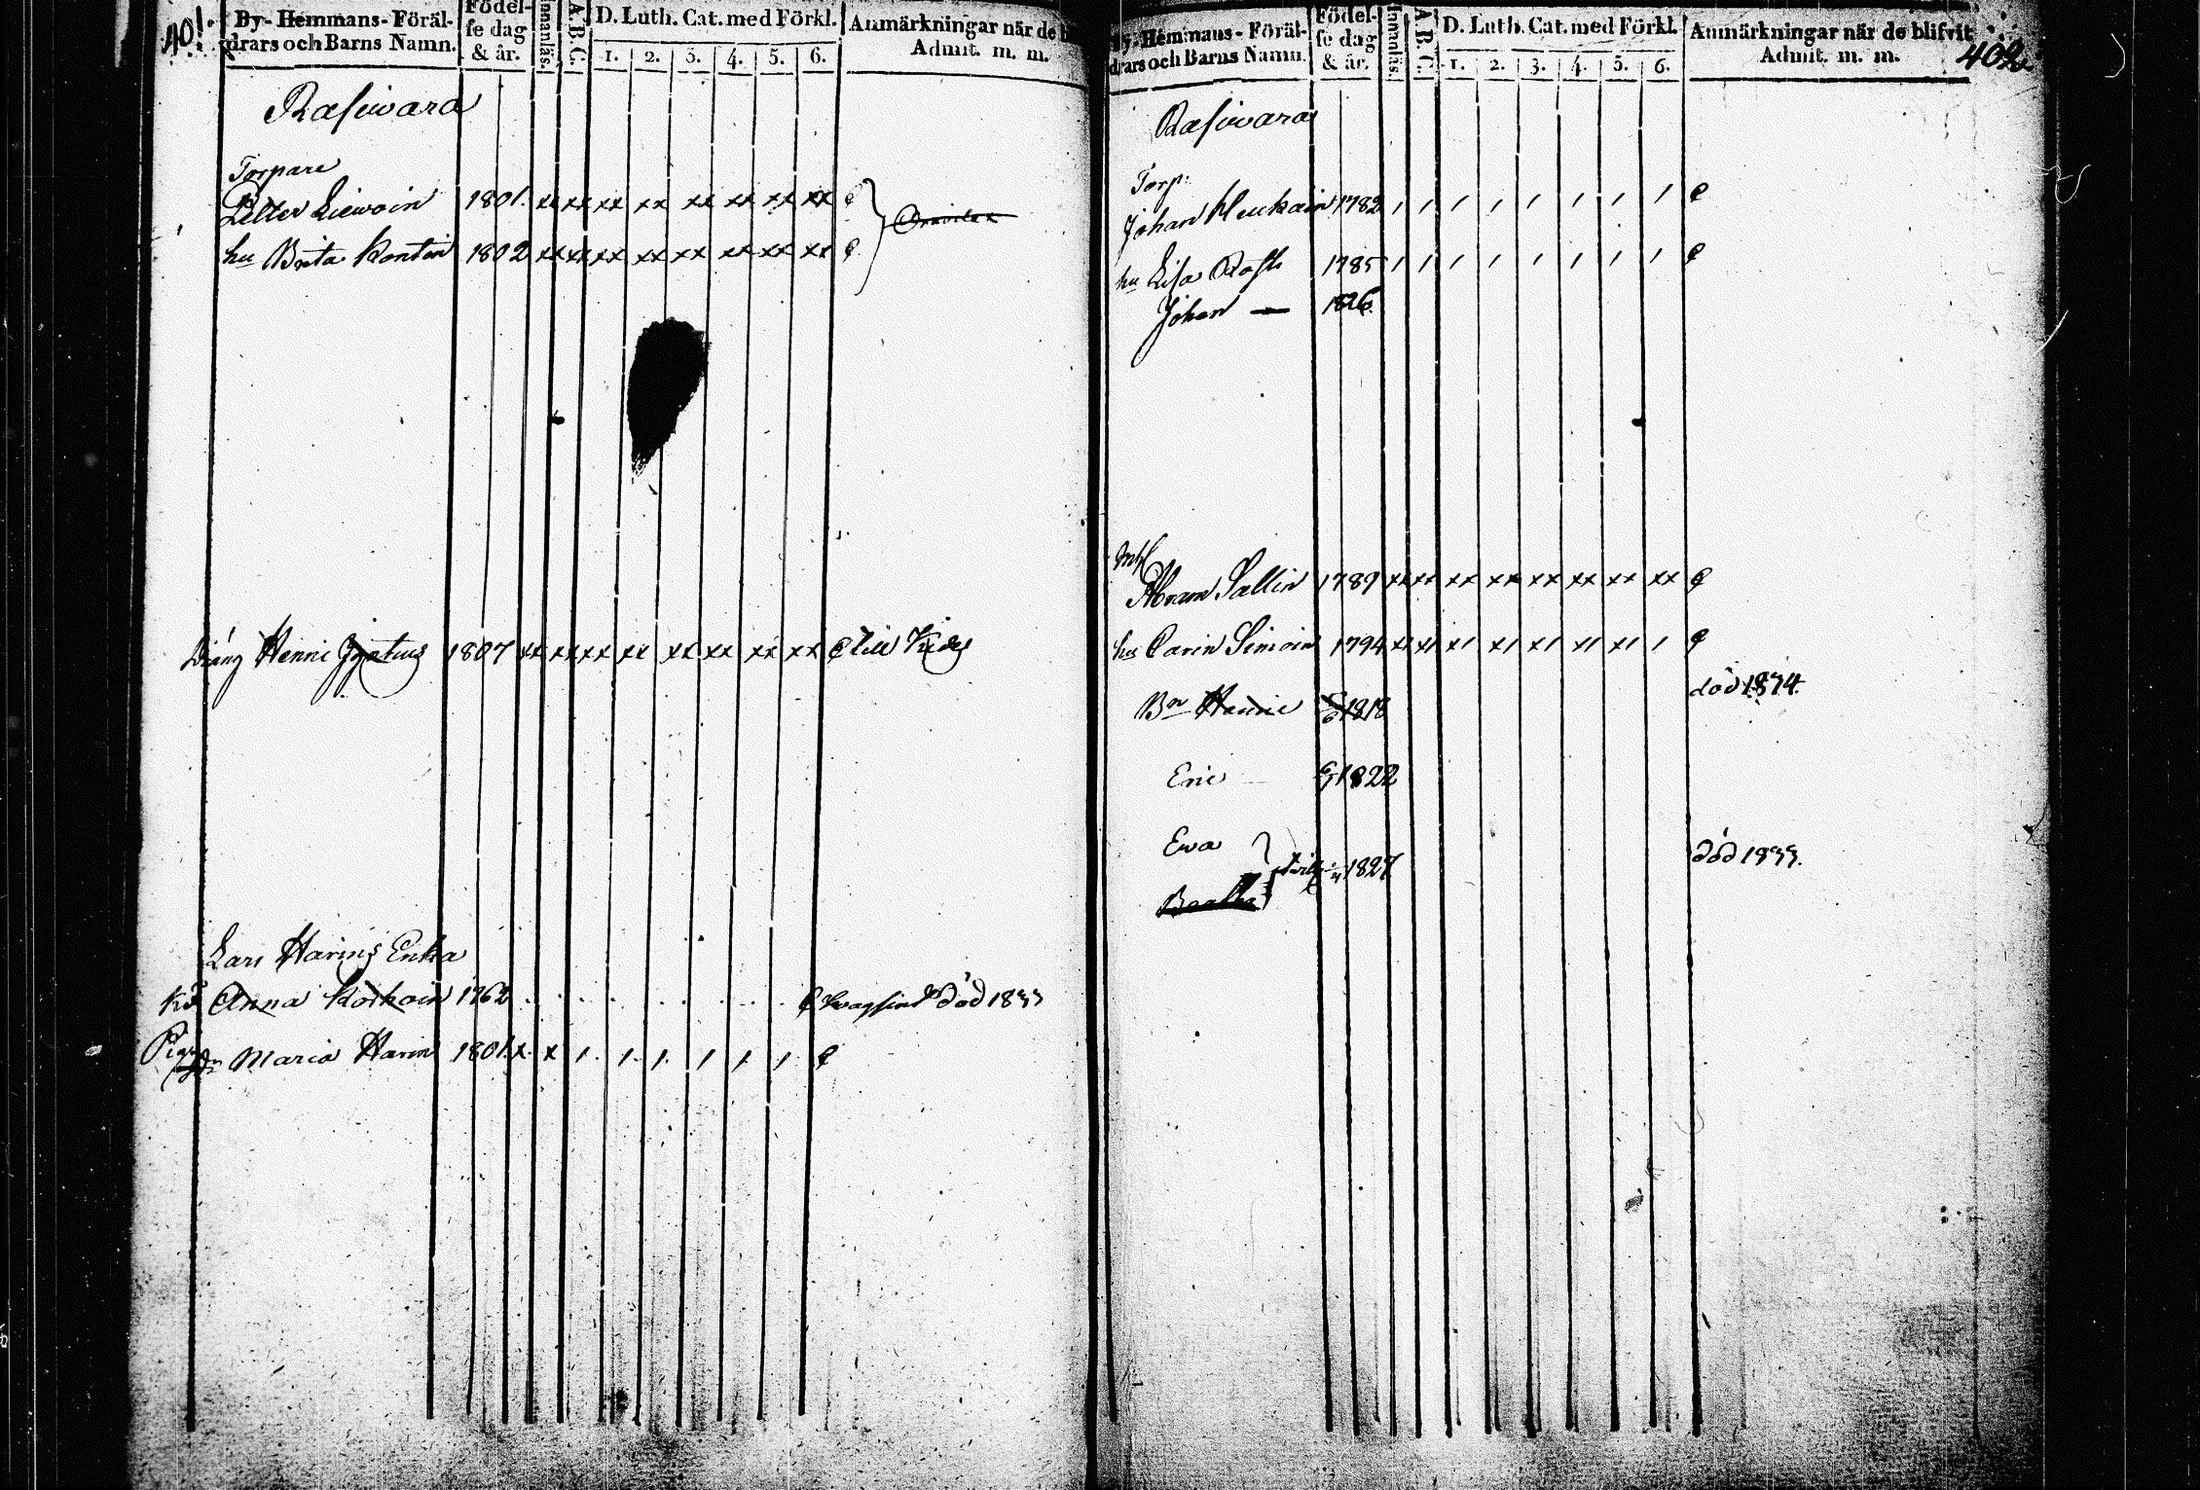 401.
By- Hemmans- Föräl-
drars och Barns Namn.
Födel-
se dag
& år.
Innanläs.
A. B. C.
D. Luth. Cat. med Förkl.
1. 2. 3. 4. 5. 6.
Anmärkningar när de b
Admit. m. m.
Rasiwara
Torpare
Petter Liewoin 1801. xx xx xx xx xx xx xx xx
hu Brita Kontin 1802 xx xx xx xx xx xx xx xx
Dräng Henric Ignatius 1807 xx xx xx xx xx xx xx xx till
Lars Harings Enka
Anna Korhoin 1762 död 1833
Maria Harin 1801. x x 1 1 1 1 1 1
402.
By- Hemmans- Föräl-
drars och Barns Namn.
Födel-
se dag
& år.
Innanläs.
A. B. C.
D. Luth. Cat. med Förkl.
1. 2. 3. 4. 5. 6.
Anmärkningar när de blifvit
Admit. m. m.
Rasiwara
Torp:
Johan 1782 1 1 1 1 1 1 1 1
hu Lisa 1785 1 1 1 1 1 1 1 1
Johan — 1826.
Abram Sallin 1789 xx xx xx xx xx xx xx xx
hu Carin Simoin 1794 x1 x1 x1 x1 x1 x1 x1 1
död 1834.
Bn Henric 1818
Eric 1822
Ewa
död 1833.
1827